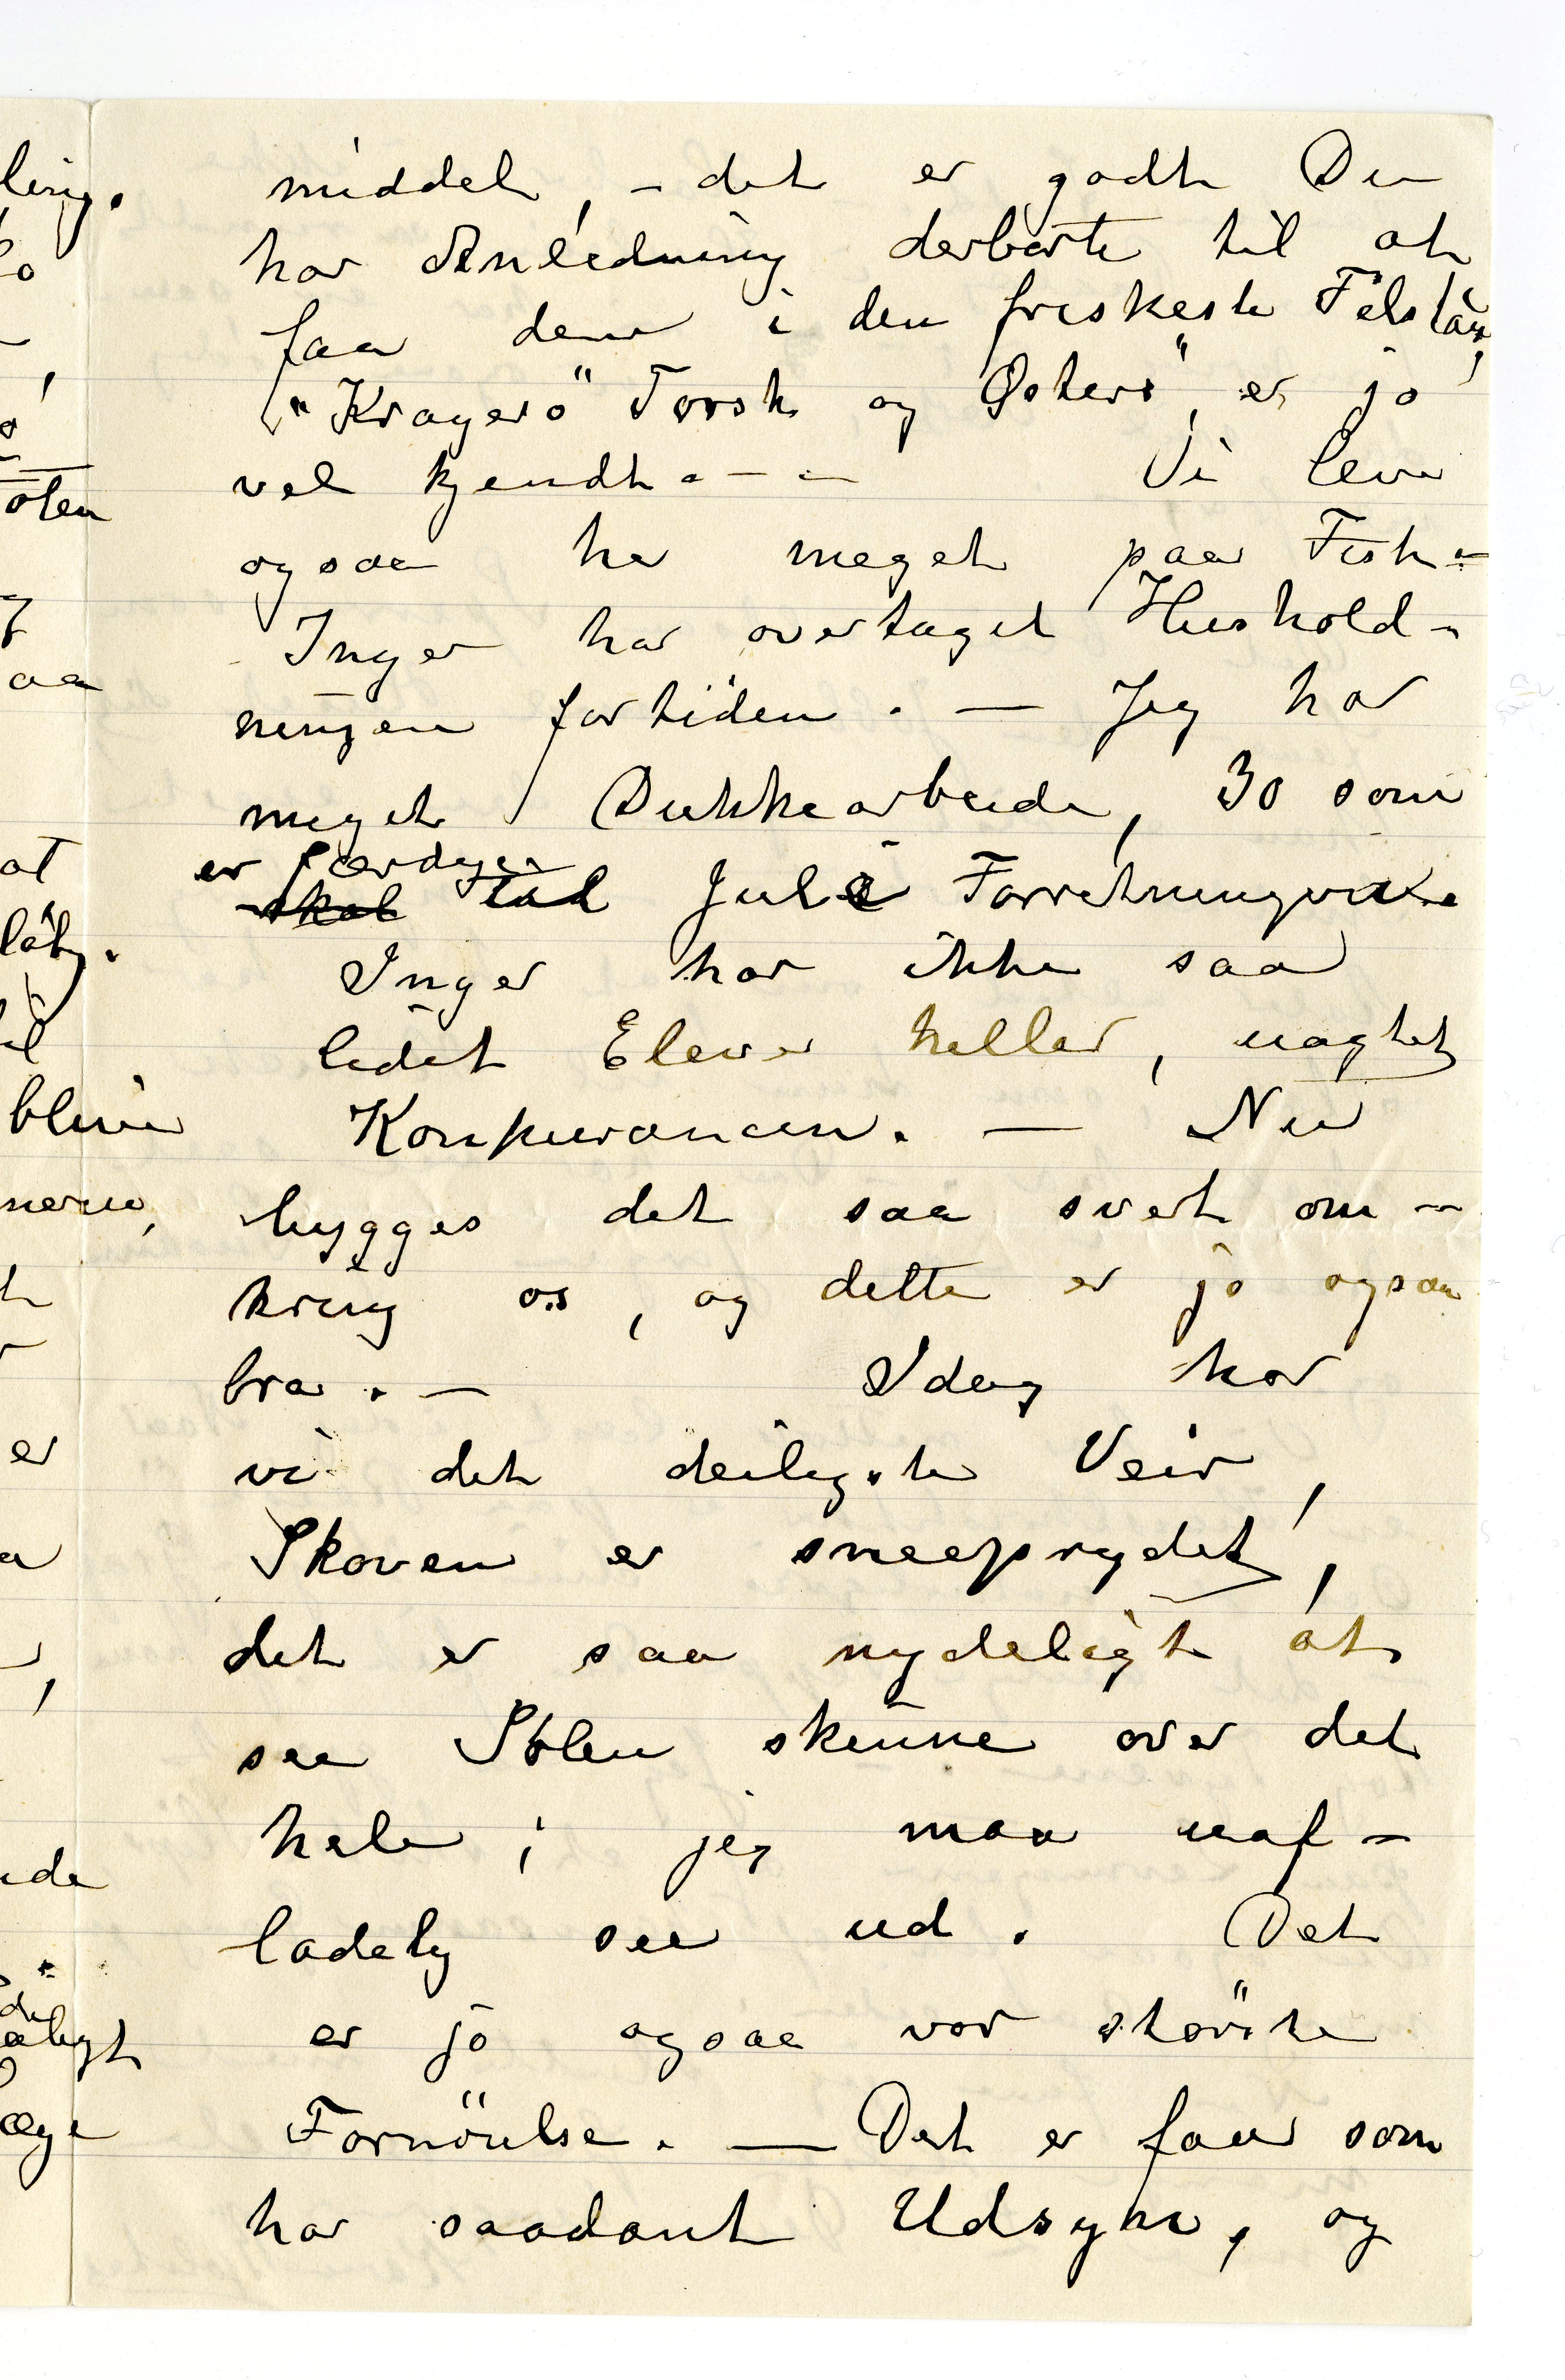 middel, – det er godt Du
har Anledning derborte til at
faa dem i den friskeste Tilstand,
"Kragerö" Torsk og Østers", er jo
vel kjendt. – –  Vi lever
ogsaa her meget paa Fisk. –
Inger har overtaget Hushold-
ningen fortiden. — Jeg har
meget Dukkearbeide, 30 som
er færdige
skal til Jule
Inger har ikke saa
lidet Elever heller, uagtet
Konkurancen. — Nu
bygges det saa svert om-
kring os, og dette er jo ogsaa
bra. —  Idag har
vi det deiligste Veir,
Skoven er sneeprydet,
det er saa nydeligt at
see Solen skinne over det
hele; jeg maa uaf-
ladelig see ud. Det
er jo ogsaa vor störste
Fornöielse. — Det er faa som
har saadant Udsyn, og
ling.
oten
aa
at
blive
er